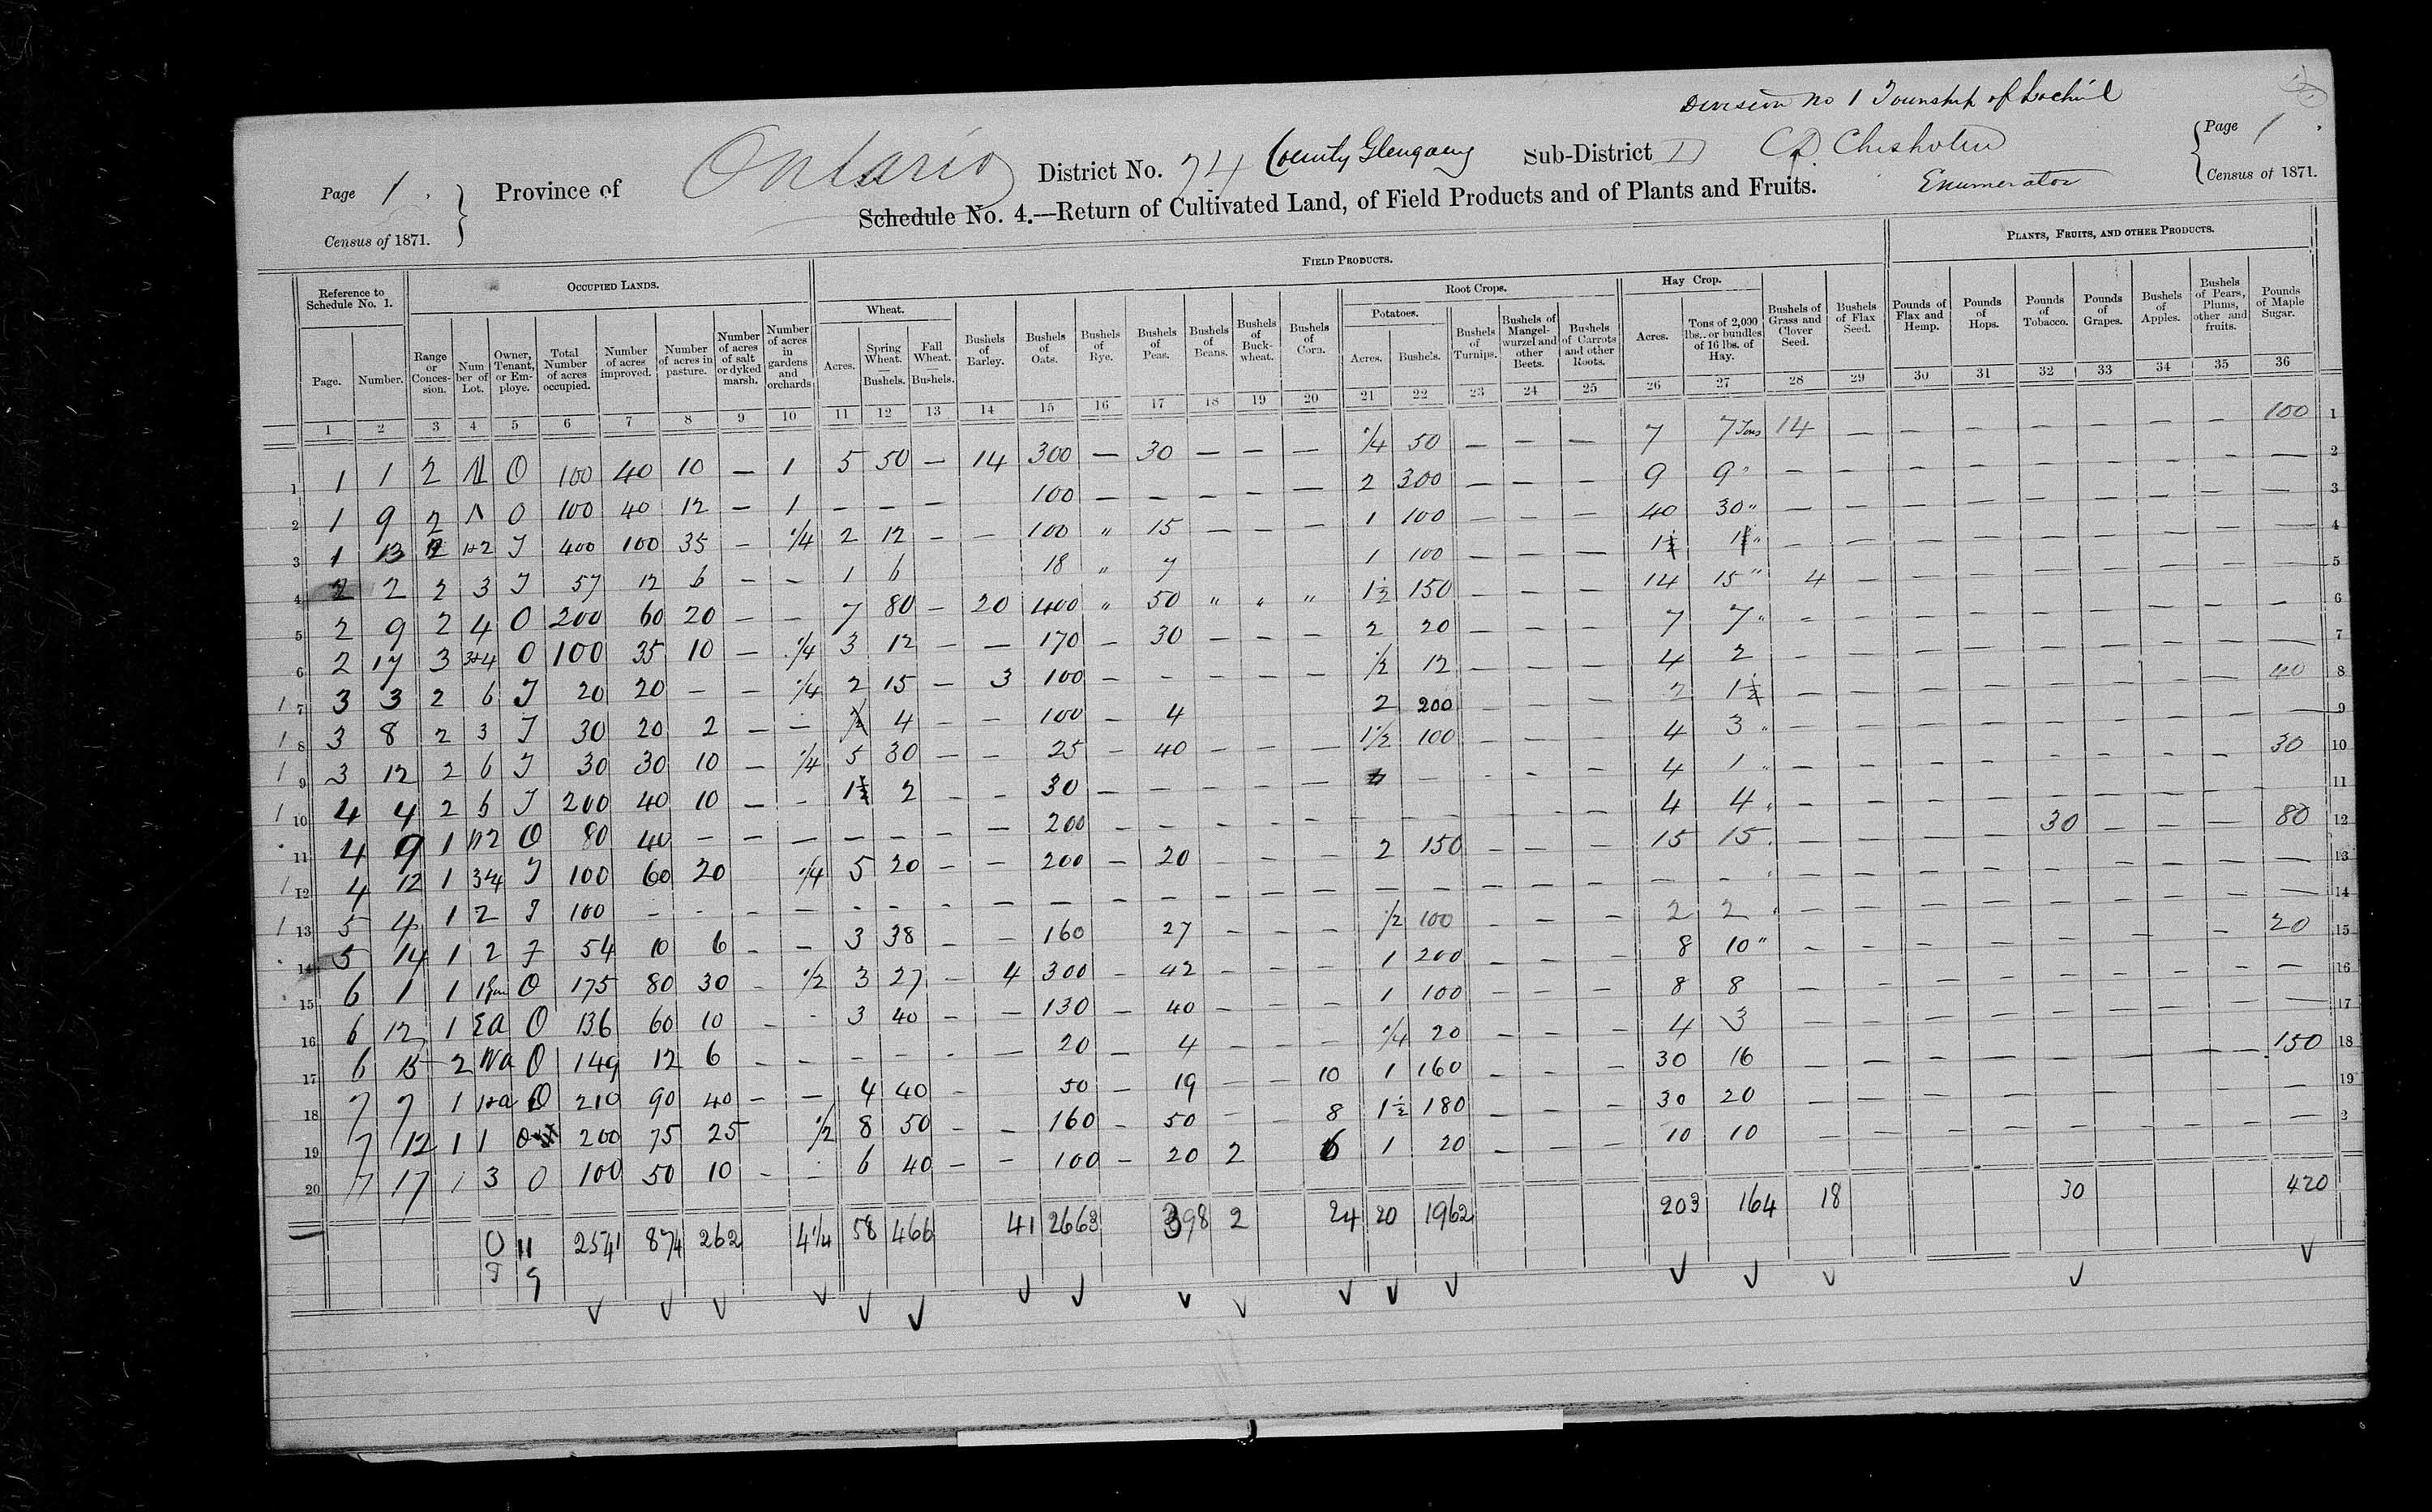 Division No 1 Township of Lochiel
Page 1. Province of Ontario District No. 74 County Glengarry Sub-District D C D Chisholm Page 1.
Census of 1871. Schedule No. 4.—Return of Cultivated Land, of Field Products and of Plants and Fruits. Enumerator Census of 1871.
Reference to Schedule No. 1. OCCUPIED LANDS. FIELD PRODUCTS. PLANTS, FRUITS, AND OTHER PRODUCTS.
Wheat. Root Crops. Potatoes. Hay Crop.
Page. Number. Range or Concession. Number of Lot. Owner, Tenant, or Employe. Total Number of acres occupied. Number of acres improved. Number of acres in pasture. Number of acres of salt or dyked marsh. Number of acres in gardens and orchards Acres. Spring Wheat. — Bushels. Fall Wheat. — Bushels. Bushels of Barley. Bushels of Oats. Bushels of Rye. Bushels of Peas. Bushels of Beans. Bushels of Buckwheat. Bushels of Corn. Acres. Bushels. Bushels of Turnips. Bushels of Mangelwurzel and other Beets. Bushels of Carrots and other Roots. Acres. Tons of 2,000 lbs. or bundles of 16 lbs. of Hay. Bushels of Grass and Clover Seed. Bushels of Flax Seed. Pounds of Flax and Hemp. Pounds of Hops. Pounds of Tobacco. Pounds of Grapes. Bushels of Apples. Bushels of Pears, Plums, other and fruits. Pounds of Maple Sugar.
1 2 3 4 5 6 7 8 9 10 11 12 13 14 15 16 17 18 19 20 21 22 23 24 25 26 27 28 29 30 31 32 33 34 35 36
1 1 1 2 O 100 40 10 — 1 5 50 — 14 300 — 30 — — — 1/4 50 — — — 7 7 Tons 14 — — — — — — — 100 1
2 1 9 2 O 100 40 12 — 1 — — — 100 — — — — — 2 300 — — — 9 9 " — — — — — — — — — 2
3 1 13 1+2 T 400 100 35 — 1/4 2 12 — — 100 " 15 — — — 1 100 — — — 40 30 " — — — — — — — — — 3
4 2 2 2 3 T 57 12 6 — — 1 6 18 " 7 1 100 — — — 1½ " — — — — — — — — — 4
5 2 9 2 4 O 200 60 20 — — 7 80 — 20 400 " 50 " " " 1½ 150 — — — 14 15 " 4 — — — — — — — — 5
6 2 17 3 3+4 O 100 35 10 — 1/4 3 12 — — 170 — 30 — — — 2 20 — — — 7 7 " — — — — — — — — — 6
7 3 3 2 6 T 20 20 — — 1/4 2 15 — 3 100 — — — — — 1/2 12 — — — 4 2 — — — — — — — — — 7
8 3 8 2 3 T 30 20 2 — — 1/2 4 — — 100 — 4 2 200 — — — 2 1½ — — — — — — — — 40 8
9 3 12 2 6 T 30 30 10 — 1/4 5 30 — — 25 — 40 — — — 1½ 100 — — — 4 3 " — — — — — — — — — 9
10 4 4 2 5 T 200 40 10 — — 1½ 2 — — 30 — — — — — — — — — 4 1 " — — — — — — — — 30 10
11 4 9 1 O 80 40 — — — — — — — 200 — — — — — — — — — — 4 4 " — — — — — — — — — 11
12 4 12 1 3+4 T 100 60 20 1/4 5 20 — — 200 — 20 — — — 2 150 — — — 15 15 " — — — — 30 — — — 80 12
13 5 4 1 2 T 100 — — — — — — — — — — — — — — — — — — — — — " — — — — — — — — — 13
14 5 14 1 2 T 54 10 6 — — 3 38 — — 160 27 — — — 1/2 100 — — — 2 2 " — — — — — — — — — 14
15 6 1 1 O 175 80 30 — 1/2 3 27 — 4 300 — 42 — — — 1 200 — — — 8 10 " — — — — — — — — 20 15
16 6 12 1 Ea O 136 60 10 — — 3 40 — — 130 — 40 — — — 1 100 — — — 8 8 — — — — — — — — — 16
17 6 15 2 Wa O 149 12 6 — — — — — — 20 — 4 — — — 1/4 20 — — — 4 3 — — — — — — — — — 17
18 7 7 1 O 210 90 40 — — 4 40 — 50 — 19 — — 10 1 160 — — — 30 16 — — — — — — — — 150 18
19 7 12 1 1 O 200 75 25 1/2 8 50 — — 160 — 50 — 8 1½ 180 — — — 30 20 — — — — — — — — 19
20 7 17 1 3 O 100 50 10 — — 6 40 — — 100 — 20 2 6 1 20 — — — 10 10 — — — — — — — — — 2
O 11 2541 874 262 4¼ 58 466 41 2663 398 2 24 20 1962 203 164 18 30 420
T 9